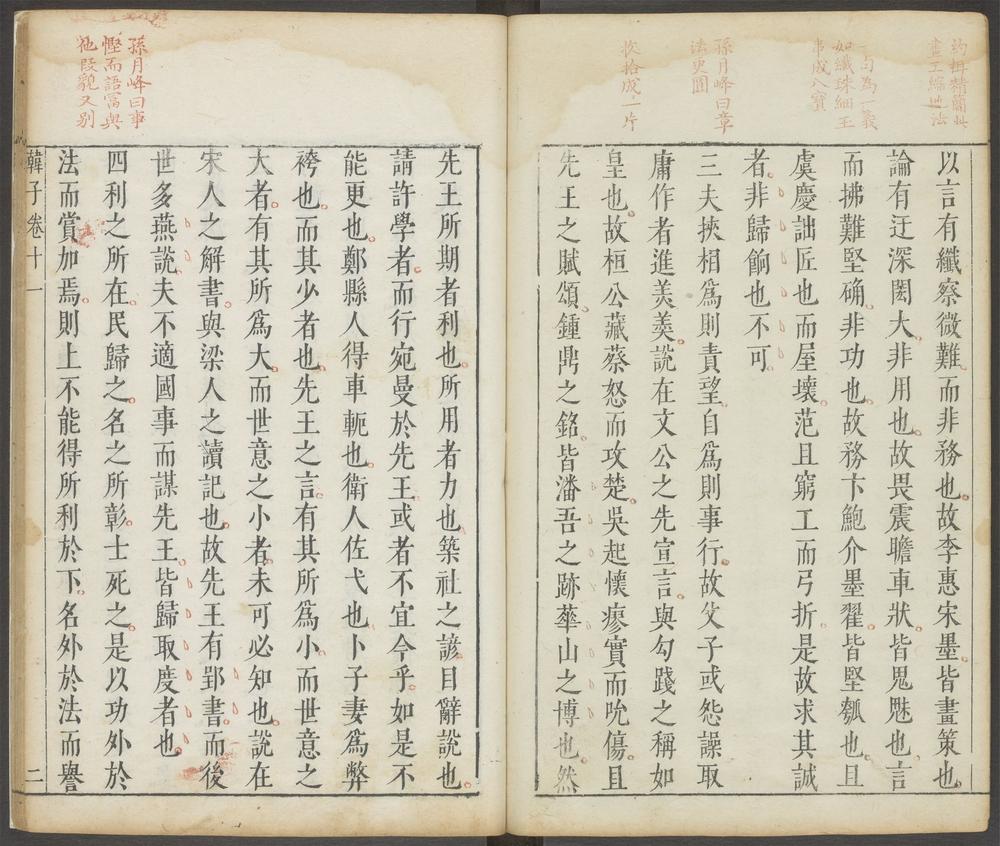 約拙精簡其
畫工綜地法
一句為一義
如纖珠細玉
事成八寶
孫月峰曰章
法更圓
收拾成一片
以言有纖察微難而非務也故李惠宋墨皆畫策也
論有迂深閎大非用也故畏震瞻車狀皆鬼魅也言
而拂難堅确非功也故務卞鮑介墨翟皆堅瓠也且
虞慶詘匠也而屋壞范且窮工而弓折是故求其誠
者非歸餉也不可
三夫挾相爲則責望自爲則事行故父子或怨譟取
庸作者進美羹說在文公之先宣言與勾踐之稱如
皇也故桓公藏蔡怒而攻楚吳起懷瘳實而吮傷且
先王之賦頌鍾鼎之銘皆潘吾之跡華山之博也然
孫月峰曰事
慳而語冨與
他段貌又别
先王所期者利也所用者力也築社之諺目辭說也
請許學者而行宛曼於先王或者不宜今乎如是不
能更也鄭縣人得車軛也衛人佐弋也卜子妻爲弊
袴也而其少者也先王之言有其所爲小而世意之
大者有其所爲大而世意之小者未可必知也說在
宋人之解書與梁人之讀記也故先王有郢書而後
世多燕說夫不適國事而謀先王皆歸取度者也
四利之所在民歸之名之所彰士死之是以功外於
法而賞加焉則上不能得所利於下名外於法而譽
韓子卷十一
二